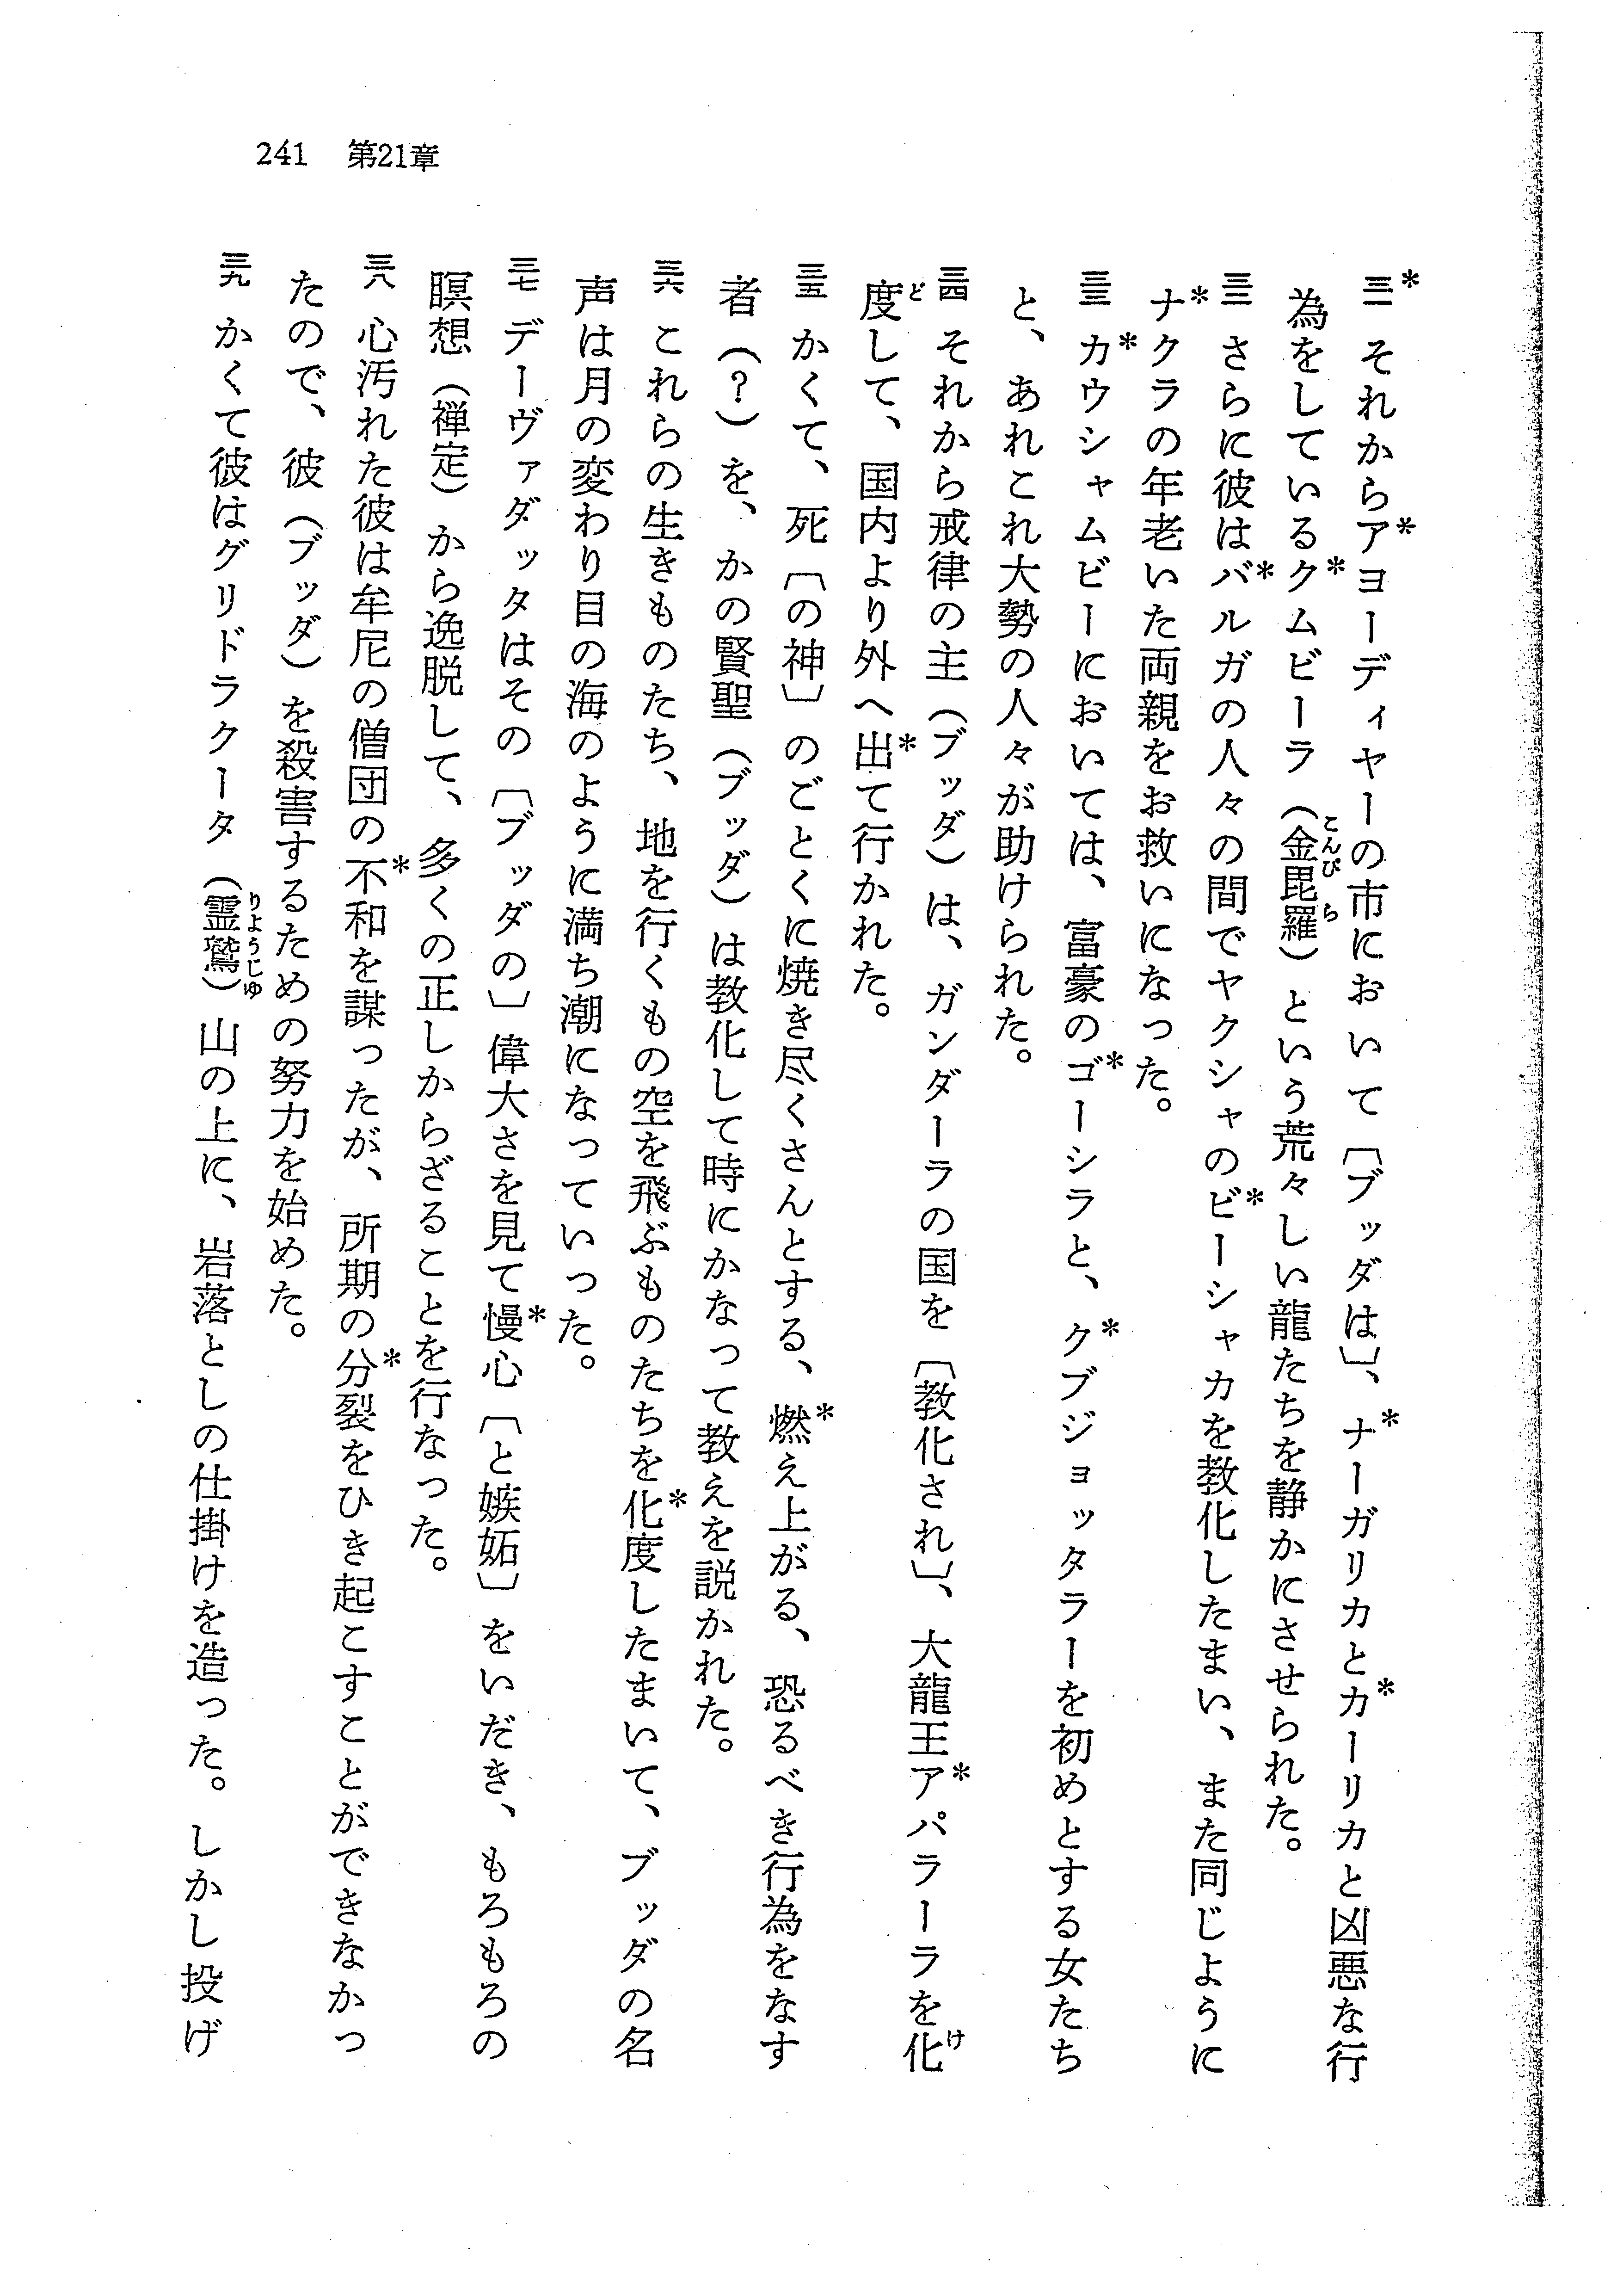 241 第21章
*三一 それから*アヨーディヤーの市において〔ブッダは〕、*ナーガリカと*カーリカと凶悪な行
為をしている*クムビーラ（金毘羅こんぴら）という荒々しい龍たちを静かにさせられた。
三二 さらに彼は*バルガの人々の間でヤクシャの*ビーシャカを教化したまい、また同じように
*ナクラの年老いた両親をお救いになった。
三三 *カウシャムビーにおいては、富豪の*ゴーシラと、*クブジョッタラーを初めとする女たち
と、あれこれ大勢の人々が助けられた。
三四 それから戒律の主（ブッダ）は、ガンダーラの国を〔教化され〕、大龍王*アパラーラを化け
度どして、国内より外へ*出て行かれた。
三五 かくて、死〔の神〕のごとくに焼き尽くさんとする、*燃え上がる、恐るべき行為をなす
者（？）を、かの賢聖（ブッダ）は教化して時にかなって教えを説かれた。
三六 これらの生きものたち、地を行くもの空を飛ぶものたちを*化度したまいて、ブッダの名
声は月の変わり目の海のように満ち潮になっていった。
三七 デーヴァダッタはその〔ブッダの〕偉大さを見て*慢心〔と嫉妬〕をいだき、もろもろの
瞑想（禅定）から逸脱して、多くの正しからざることを行なった。
三八 心汚れた彼は牟尼の僧団の*不和を謀ったが、所期の*分裂をひき起こすことができなかっ
たので、彼（ブッダ）を殺害するための努力を始めた。
三九 かくて彼はグリドラクータ（霊鷲りようじゆ）山の上に、岩落としの仕掛けを造った。しかし投げ